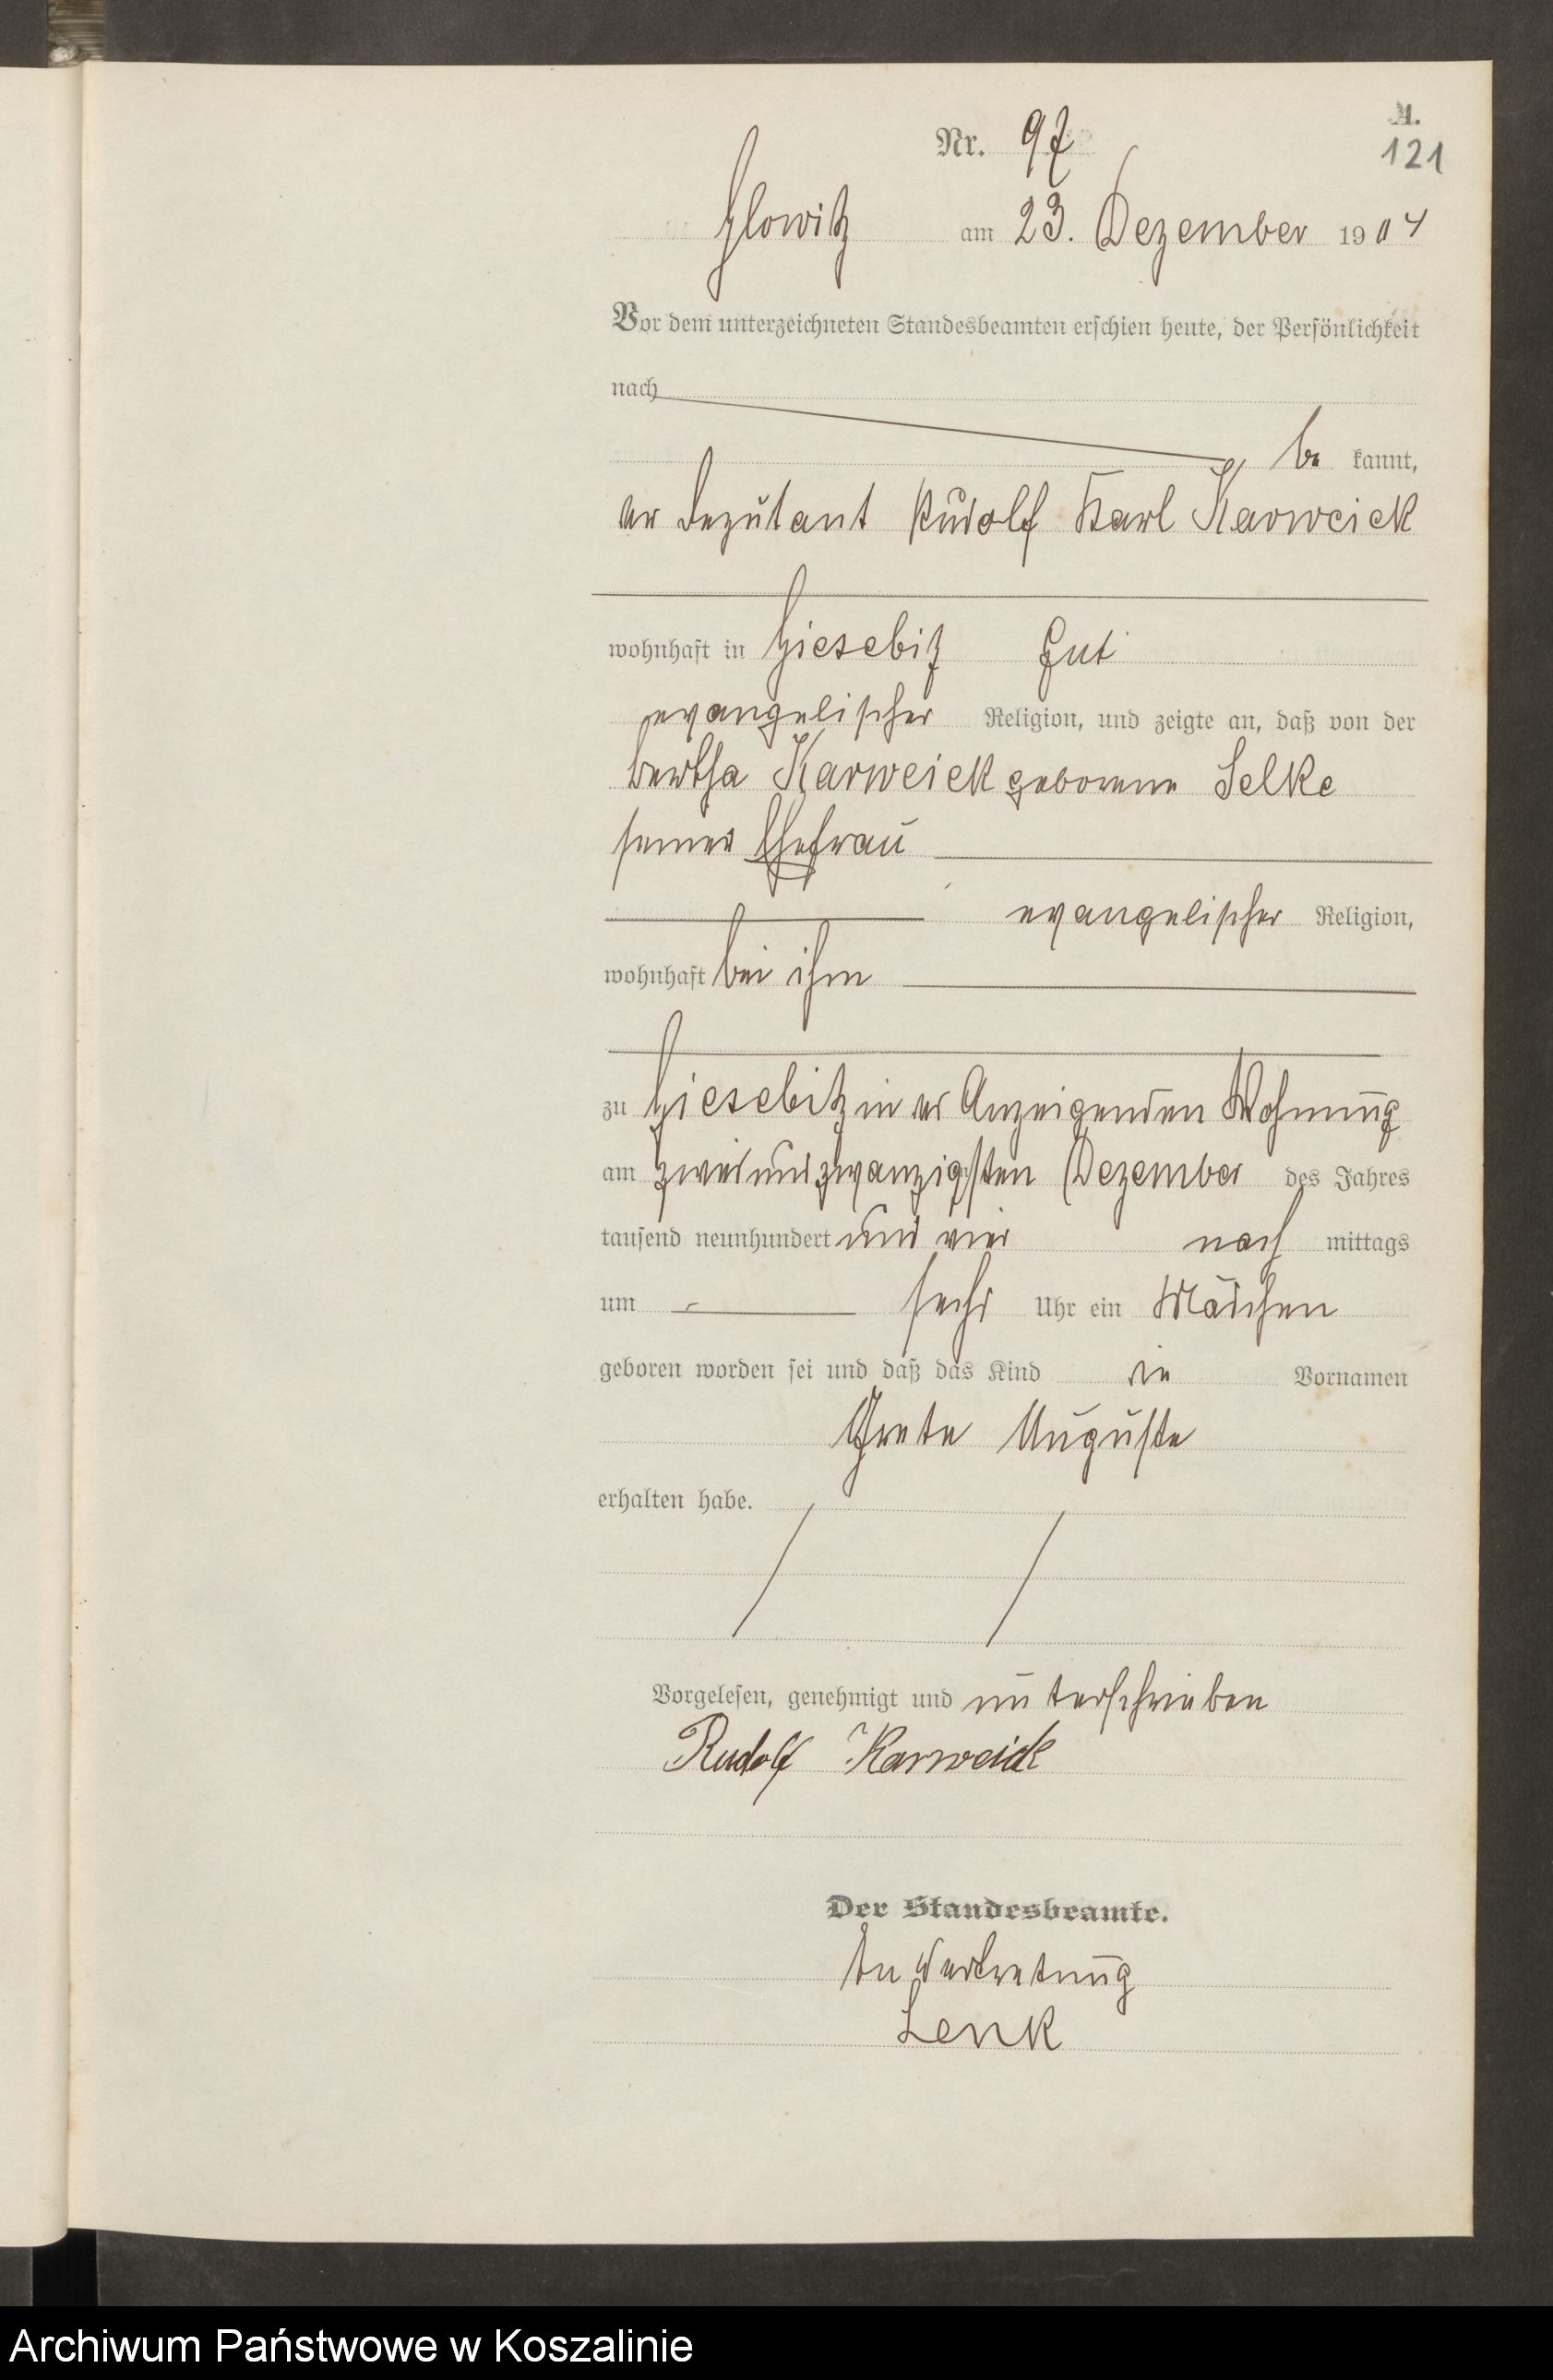 A.
Nr. 97
121
Glowitz am 23. Dezember 1904
Vor dem unterzeichneten Standesbeamten erschien heute, der Persönlichkeit
nach
be kannt,
der Deputant Rudolf Karl Karweick
wohnhaft in Giesebitz Gut
evangelischer Religion, und zeigte an, daß von der
Bertha Karweick geborene Selke
seiner Ehefrau
evangelischer Religion,
wohnhaft bei ihm
zu Giesebitz in des Anzeigenden Wohnung
am zweiundzwanzigsten Dezember des Jahres
tausend neunhundert und vier nach mittags
um sechs Uhr ein Mädchen
geboren worden sei und daß das Kind die Vornamen
Grete Auguste
erhalten habe.
Vorgelesen, genehmigt und unterschrieben
Rudolf Karweick
Der Standesbeamte.
In Vertretung
Lenk
Archiwum Państwowe w Koszalinie